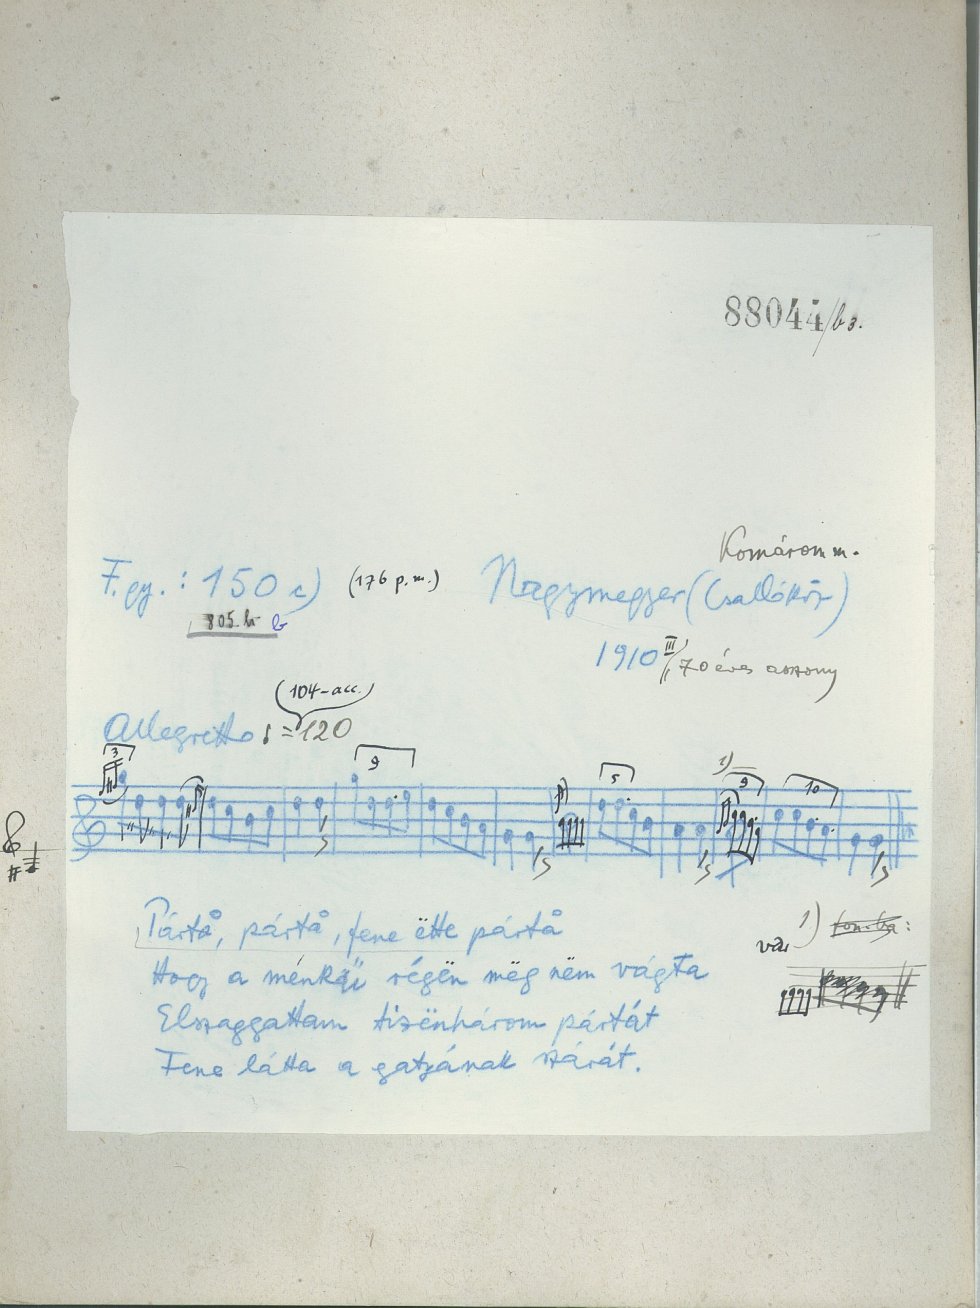 88044/b 3.
Komárom m.
F. gy.: 150 c) (176 p. m.) Nagymegyer (Csallóköz)
805. b
1910 III/ 70 éves asszony
(104-acc.)
Allegretto ♩ = 120
3 9 5 1) 9 10
Pártå, pártå, fene ëtte pártå
Hogy a ménkűi régën mëg nëm vágta
Elszaggattam tizënhárom pártát
Fene látta a gatyának szárát.
1)
var